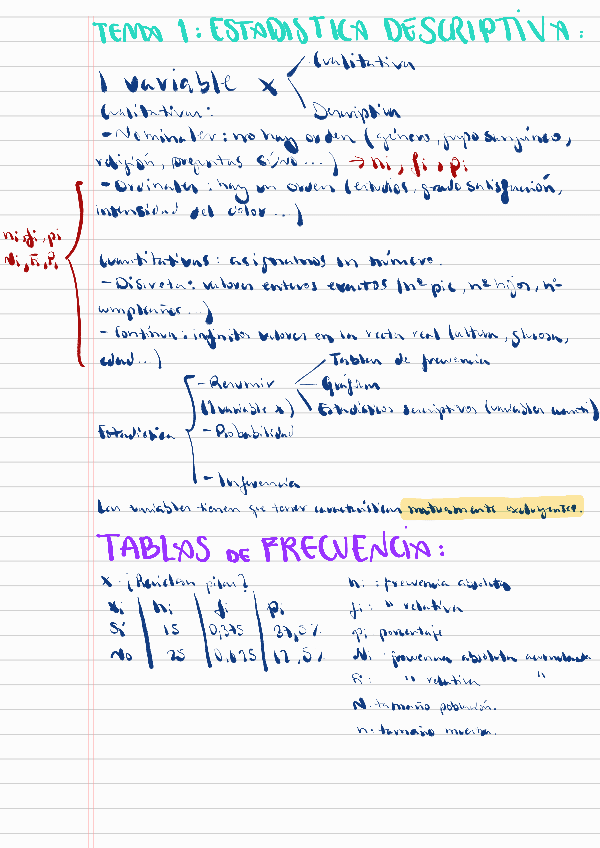 TEMA 1: ESTADISTICA DESCRIPTIVA:
1 variable x Cualitativa
Descriptiva
Cualitativas:
- Nominales: no hay orden (género, grupo sanguíneo,
religión, preguntas sí/no ...) → ni, fi, pi
- Ordinales: hay un orden (estudios, grado satisfacción,
intensidad del dolor ...)
ni, fi, pi
Ni, Fi, Pi
Cuantitativas: asignamos un número.
- Discreta: valores enteros exactos (nº pie, nº hijos, nº
cumpleaños ...)
- Contínua: infinitos valores en la recta real (altura, glucosa,
edad ...)
Estadística
- Resumir
(1 variable x)
Tablas de frecuencia
Gráficos
Estadísticos descriptivos (variables cuanti)
- Probabilidad
- Inferencia
Las variables tienen que tener características mutuamente excluyentes.
TABLAS DE FRECUENCIA:
x = ¿Reciclan pilas?
xi ni fi pi
Sí 15 0,375 37,5%
No 25 0,625 62,5%
ni: frecuencia absoluta
fi: " relativa
pi porcentaje
Ni: frecuencia absoluta acumulada
Fi: " relativa "
N: tamaño población.
n: tamaño muestra.